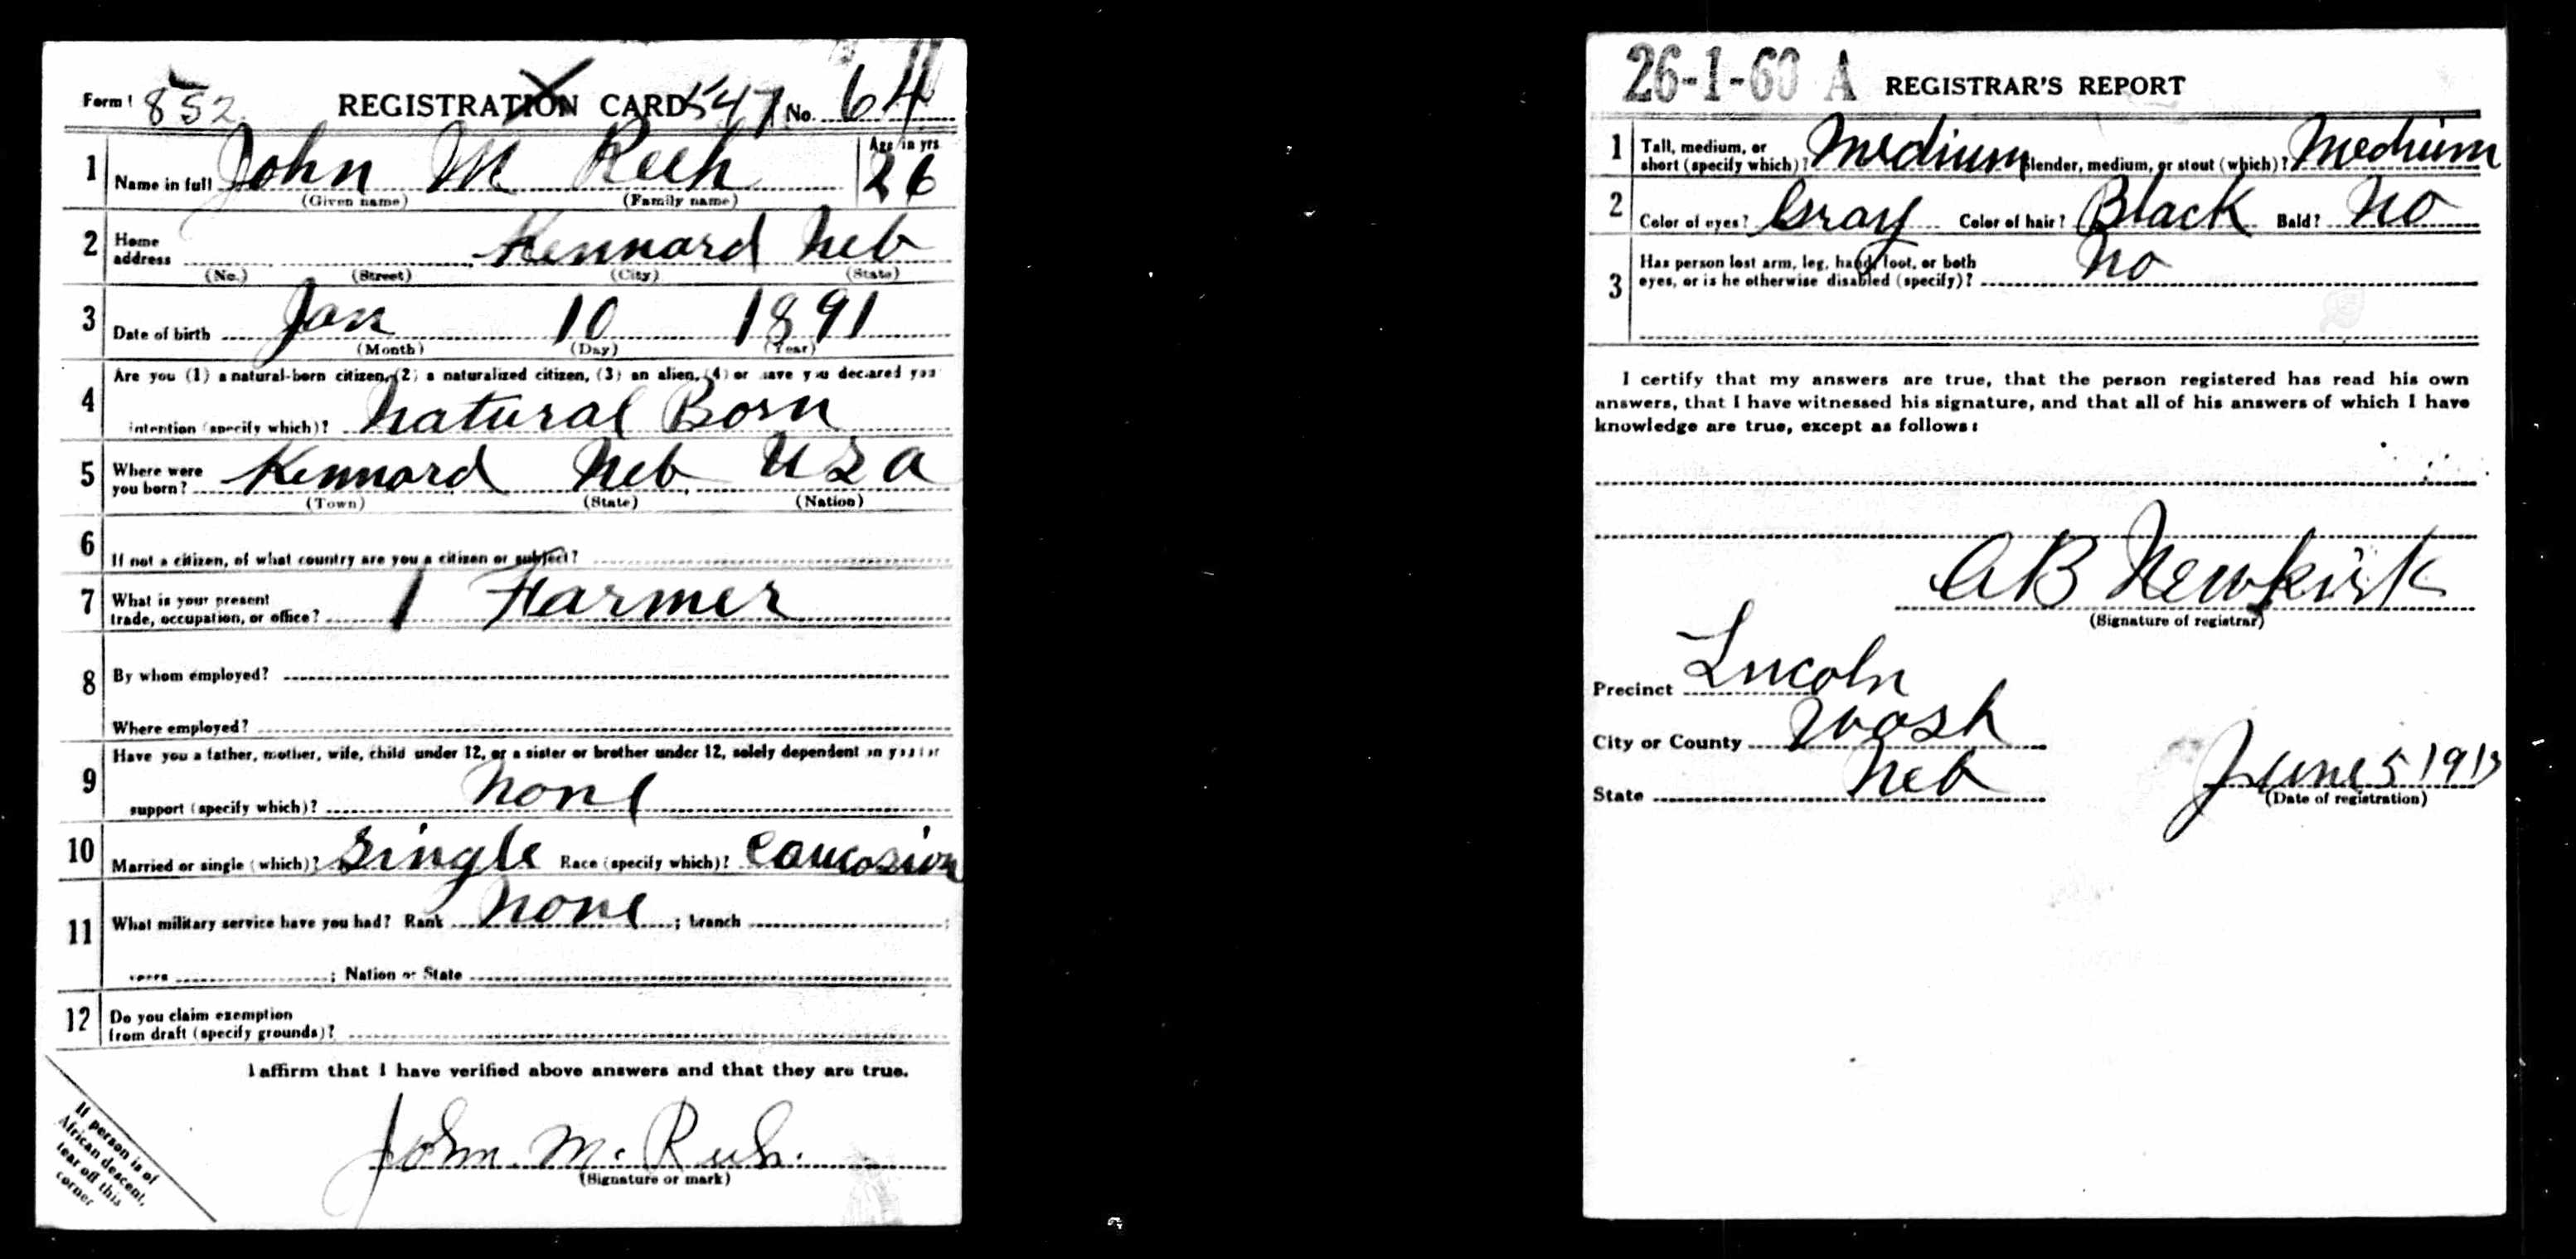 Form 1 852 REGISTRATION CARD 547 No. 64
1 Name in full John M Reeh Age in yrs 26
(Given name) (Family name)
2 Home address Kennard Neb
(No.) (Street) (City) (State)
3 Date of birth Jan 10 1891
(Month) (Day) (Year)
4 Are you (1) a natural-born citizen, (2) a naturalized citizen, (3) an alien, (4) or have you declared your
intention (specify which)? Natural Born
5 Where were you born? Kennard Neb USA
(Town) (State) (Nation)
6 If not a citizen, of what country are you a citizen or subject?
7 What is your present trade, occupation, or office? 1 Farmer
8 By whom employed?
Where employed?
9 Have you a father, mother, wife, child under 12, or a sister or brother under 12, solely dependent on you for
support (specify which)? None
10 Married or single (which)? Single Race (specify which)? Caucasion
11 What military service have you had? Rank None ; branch ;
years ; Nation or State
12 Do you claim exemption
from draft (specify grounds)?
I affirm that I have verified above answers and that they are true.
John. M. Reeh.
(Signature or mark)
If person is of
African descent,
tear off this
corner
26-1-60 A REGISTRAR'S REPORT
1 Tall, medium, or short (specify which)? Medium Slender, medium, or stout (which)? Medium
2 Color of eyes? Gray Color of hair? Black Bald? No
3 Has person lost arm, leg, hand, foot, or both
eyes, or is he otherwise disabled (specify)? No
I certify that my answers are true, that the person registered has read his own
answers, that I have witnessed his signature, and that all of his answers of which I have
knowledge are true, except as follows:
AB Newkirk
(Signature of registrar)
Precinct Lincoln
City or County Wash
State Neb June 5 1917
(Date of registration)